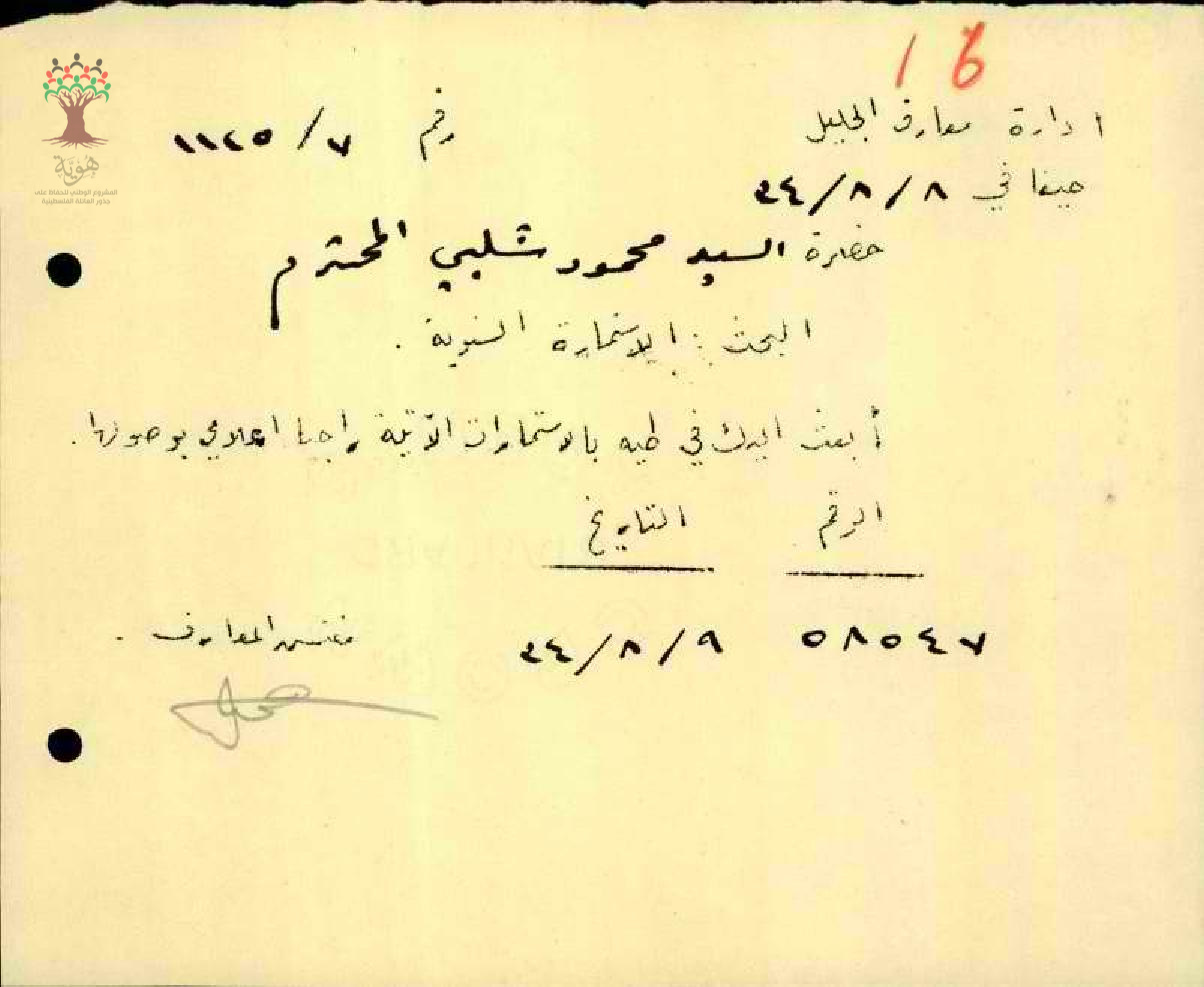 16
ادارة معارف الجليل رقم ٧/ ١١٢٥
حيفا في ٨/٨/٣٤
حضرة السيد محمود شلبي المحترم
البحث : الاستمارة السنوية .
أبعث اليك في طيه بالاستمارات الآتية راجيا اعلامي بوصولها .
الرقم التاريخ
٥٨٥٤٧ ٩/٨/٣٤
مفتش المعارف .
هُوِيَّة
المشروع الوطني للحفاظ على
جذور العائلة الفلسطينية